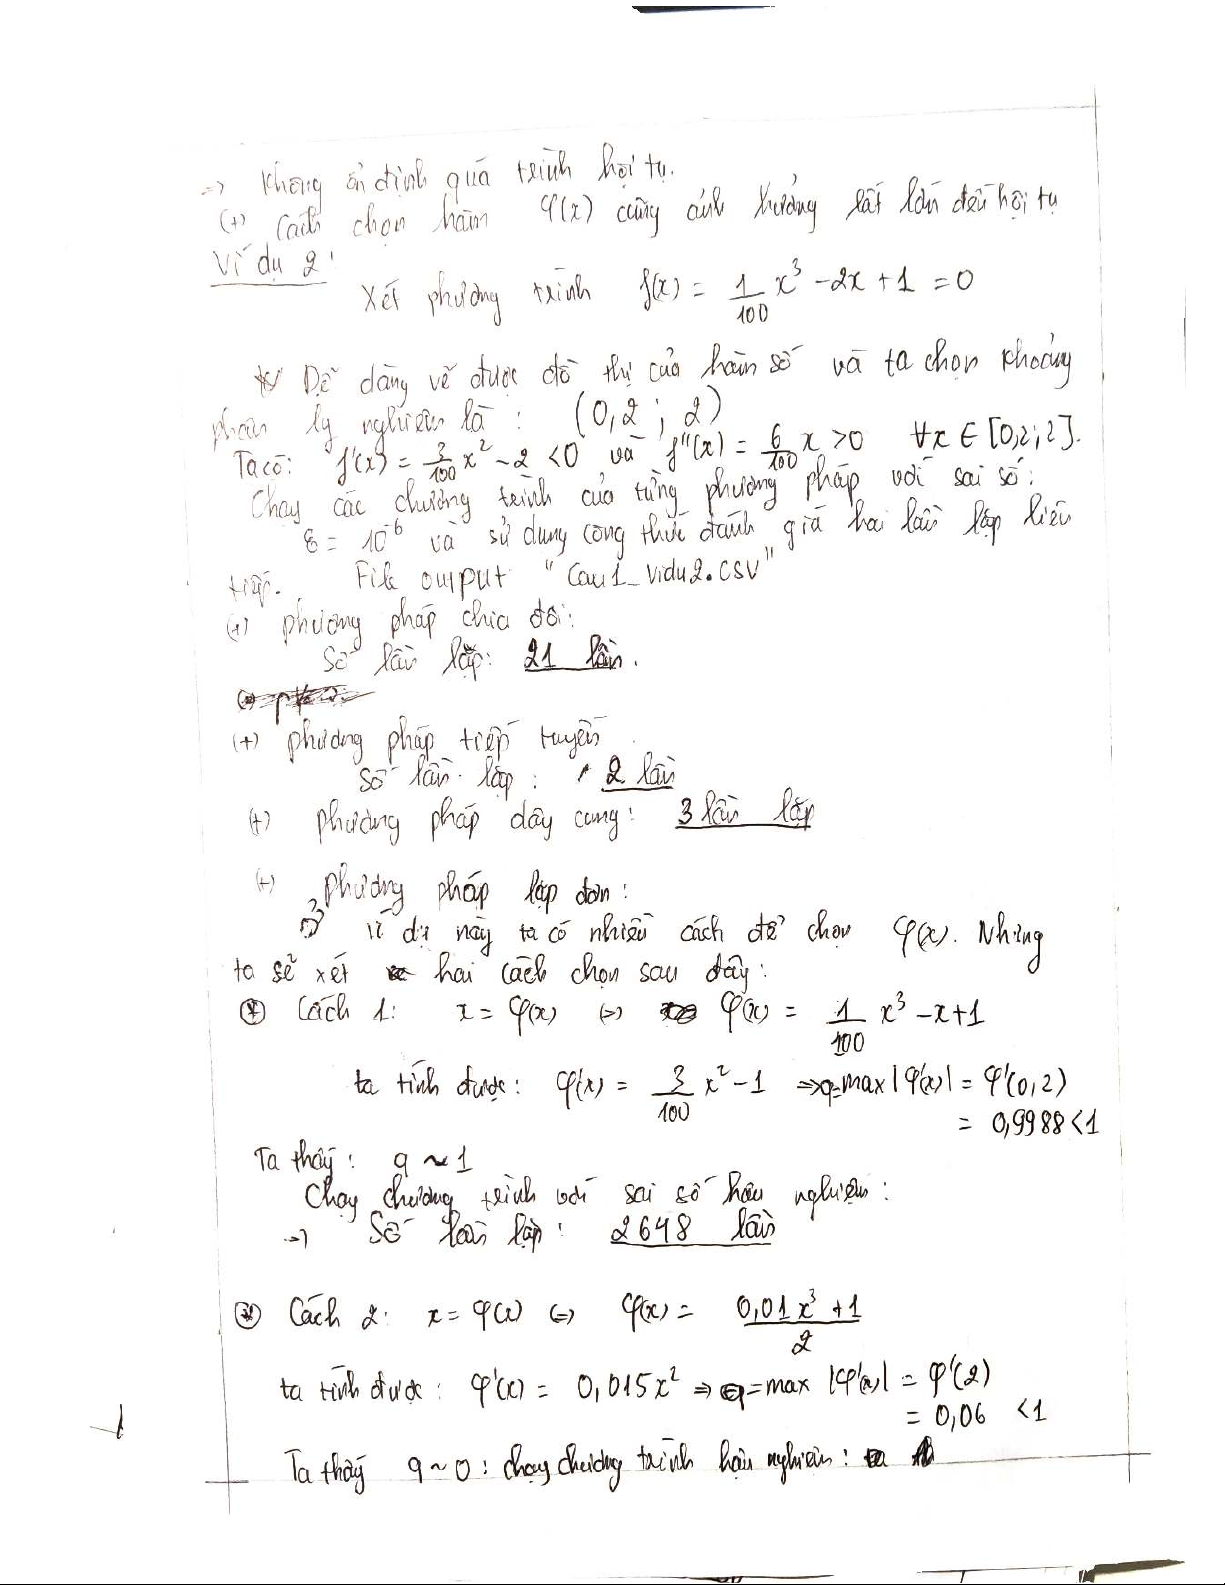 => Không ổn định quá trình hội tụ.
(+) Cách chọn hàm φ(x) cũng ảnh hưởng rất lớn đến hội tụ
Ví dụ 2:
Xét phương trình f(x) = 1/100 x³ - 2x + 1 = 0
Dễ dàng vẽ được đồ thị của hàm số và ta chọn khoảng
phân ly nghiệm là : (0,2 ; 2)
Ta có: f'(x) = 3/100 x² - 2 < 0 và f''(x) = 6/100 x > 0 ∀x ∈ [0,2; 2].
Chạy các chương trình của từng phương pháp với sai số:
ε = 10⁻⁶ và sử dụng công thức đánh giá hai lần lặp liên
tiếp. File output "Cau1_Vidu2.CSV"
(+) phương pháp chia đôi:
Số lần lặp: 21 lần.
(+) phương pháp tiếp tuyến
Số lần lặp : 2 lần
(+) phương pháp dây cung: 3 lần lặp
(+) Phương pháp lặp đơn:
Ở ví dụ này ta có nhiều cách để chọn φ(x). Nhưng
ta sẽ xét hai cách chọn sau đây:
⊛ Cách 1: x = φ(x) (=) φ(x) = 1/100 x³ - x + 1
ta tính được: φ'(x) = 3/100 x² - 1 => q = max |φ'(x)| = φ'(0,2)
= 0,9988 < 1
Ta thấy: q ~ 1
Chạy chương trình với sai số hậu nghiệm:
=> Số lần lặp: 2648 lần
⊛ Cách 2: x = φ(x) (=) φ(x) = (0,01x³ + 1)/2
ta tính được: φ'(x) = 0,015x² => q = max |φ'(x)| = φ'(2)
= 0,06 < 1
Ta thấy q ~ 0 : chạy chương trình hậu nghiệm: